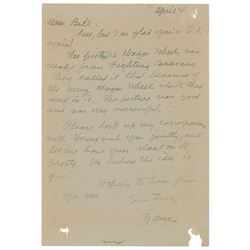 April 4
Dear Bill:
Gee, but I'm glad you're O.K.
again!
The picture Wagon Wheel was
made from Fighting Caravans
They called it that because of
the song Wagon Wheels which they
used in it. The picture was good
and was very successful.
Please look up my correspondence
with Hollywood again, and
let me have your slant on it
pronto.
Hoping to hear from
you soon
Sincerely,
Zane